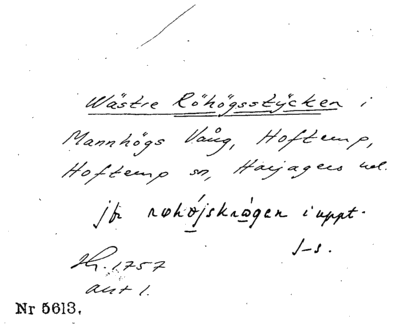 Wästre Röhögsstÿcken i
Mannhögs Vång, Hoftemp,
Hoftemp sn, Harjagers hd.
jfr røhøjskrågen i uppt.
J-s.
Hr. 1757
akt 1.
Nr 5613.